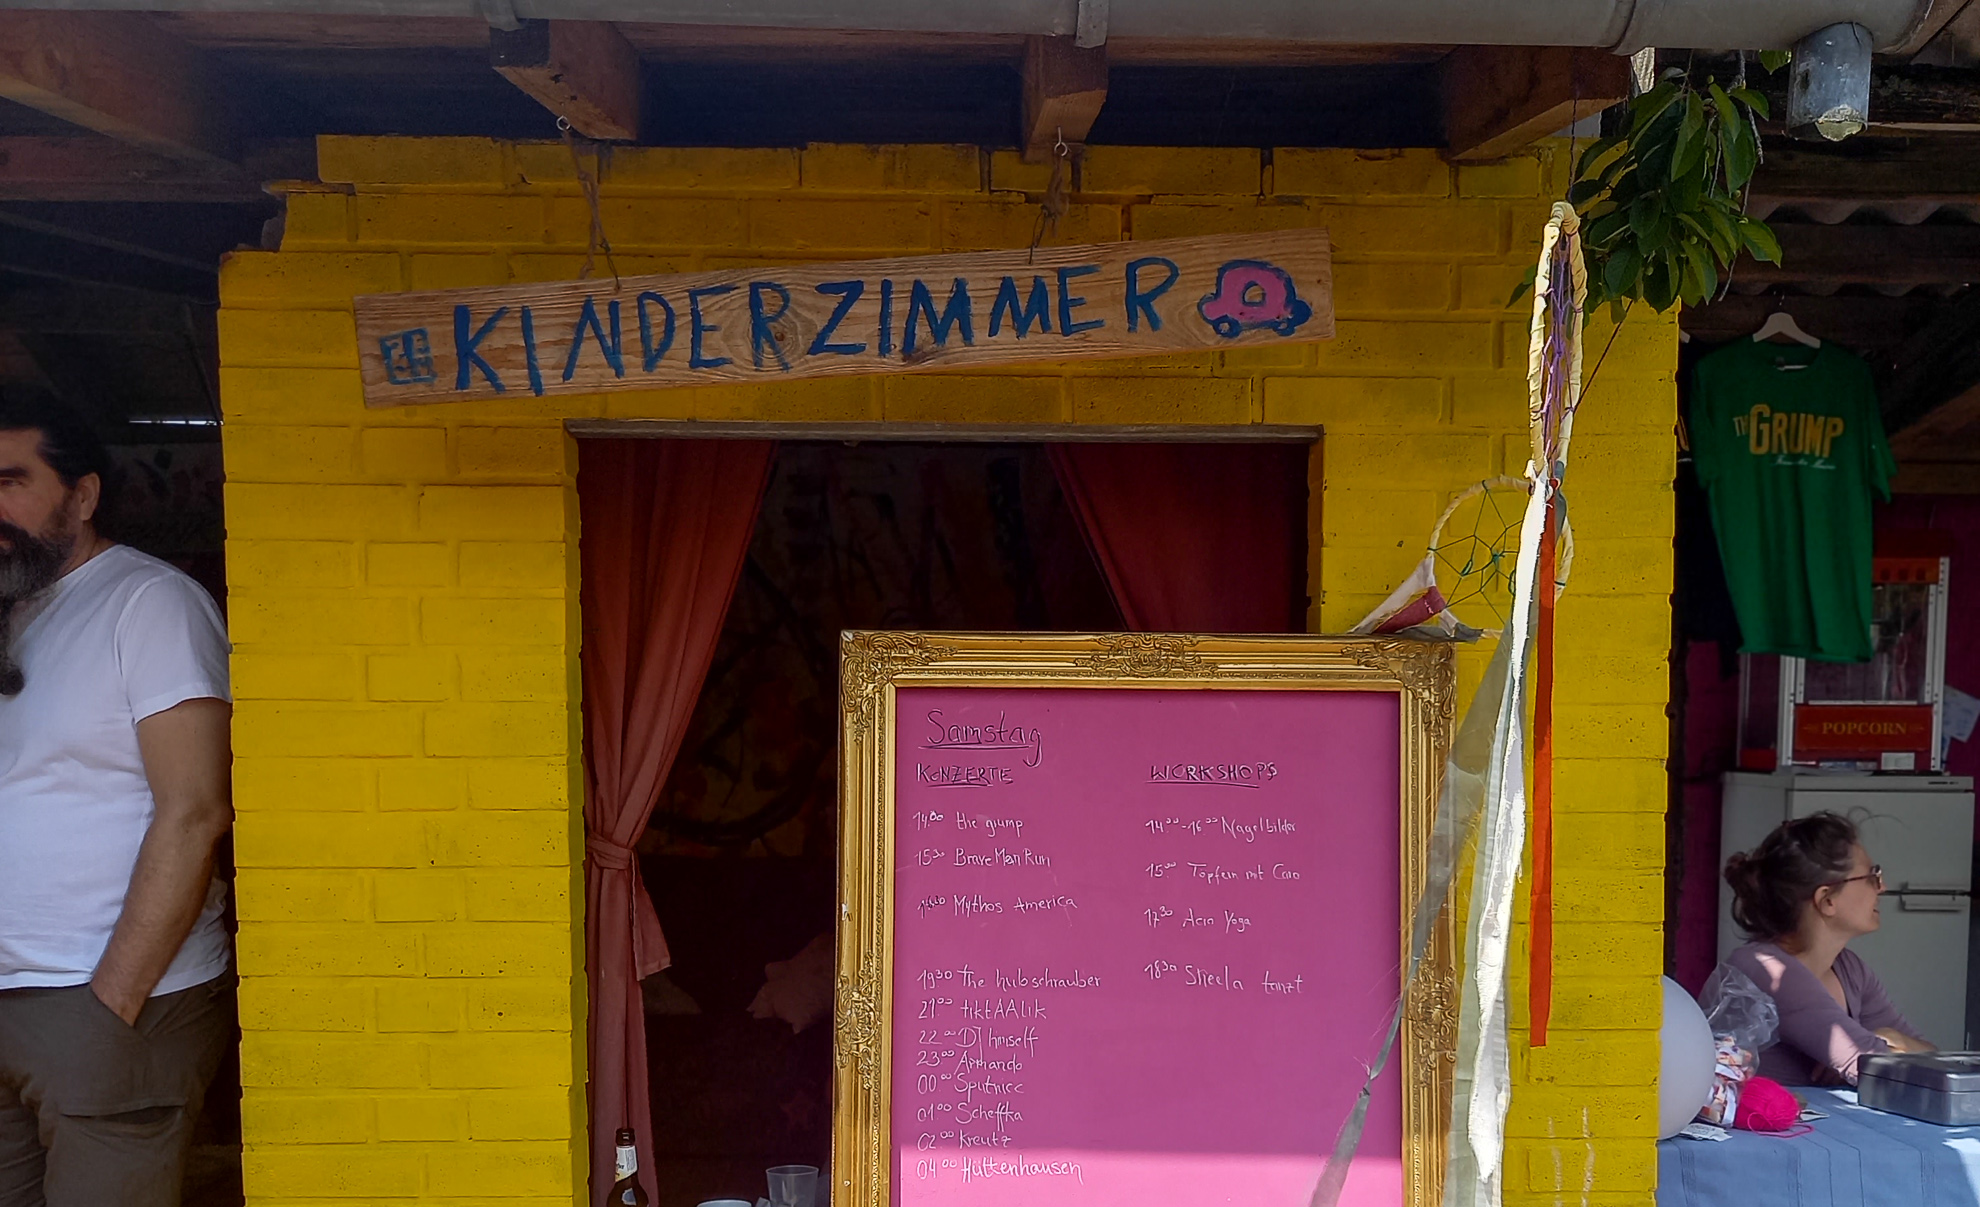 KINDERZIMMER
THE GRUMP
POPCORN
Samstag
KONZERTE
14.00 the grump
15³⁰ BraveManRun
Mythos America
19³⁰ The hubschrauber
21⁰⁰ tiktAAlik
22⁰⁰ DJ himself
23⁰⁰ Armando
00⁰⁰ Sputnicc
01⁰⁰ Scheffka
02⁰⁰ Kreutz
04⁰⁰ Hüttenhausen
WORKSHOPS
14⁰⁰-16⁰⁰ Nagelbilder
15⁰⁰ Töpfern mit Caro
17³⁰ Acro Yoga
18³⁰ Sheela tanzt